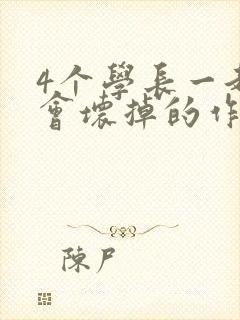 4个學長一
會壞掉的作
陳尸